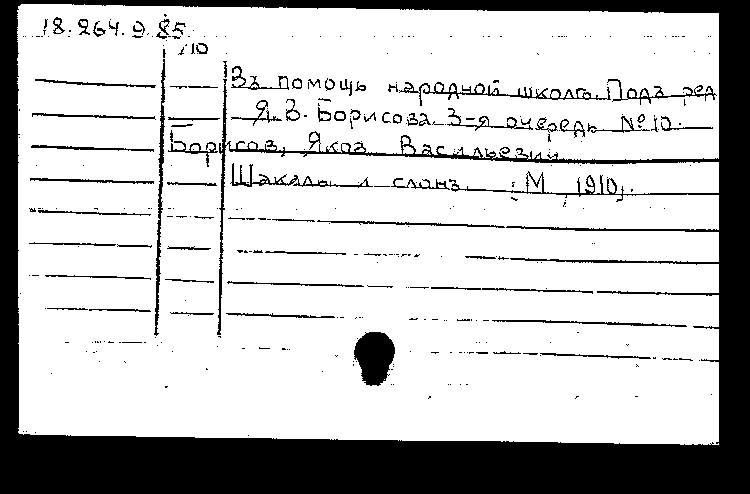 18.264.9.85
/10
Въ помощь народной школѣ. Подъ ред
Я.В. Борисова. 3-я очередь №10.
Борисов, Яков Васильевич
Шакалъ и слонъ. М 1910.